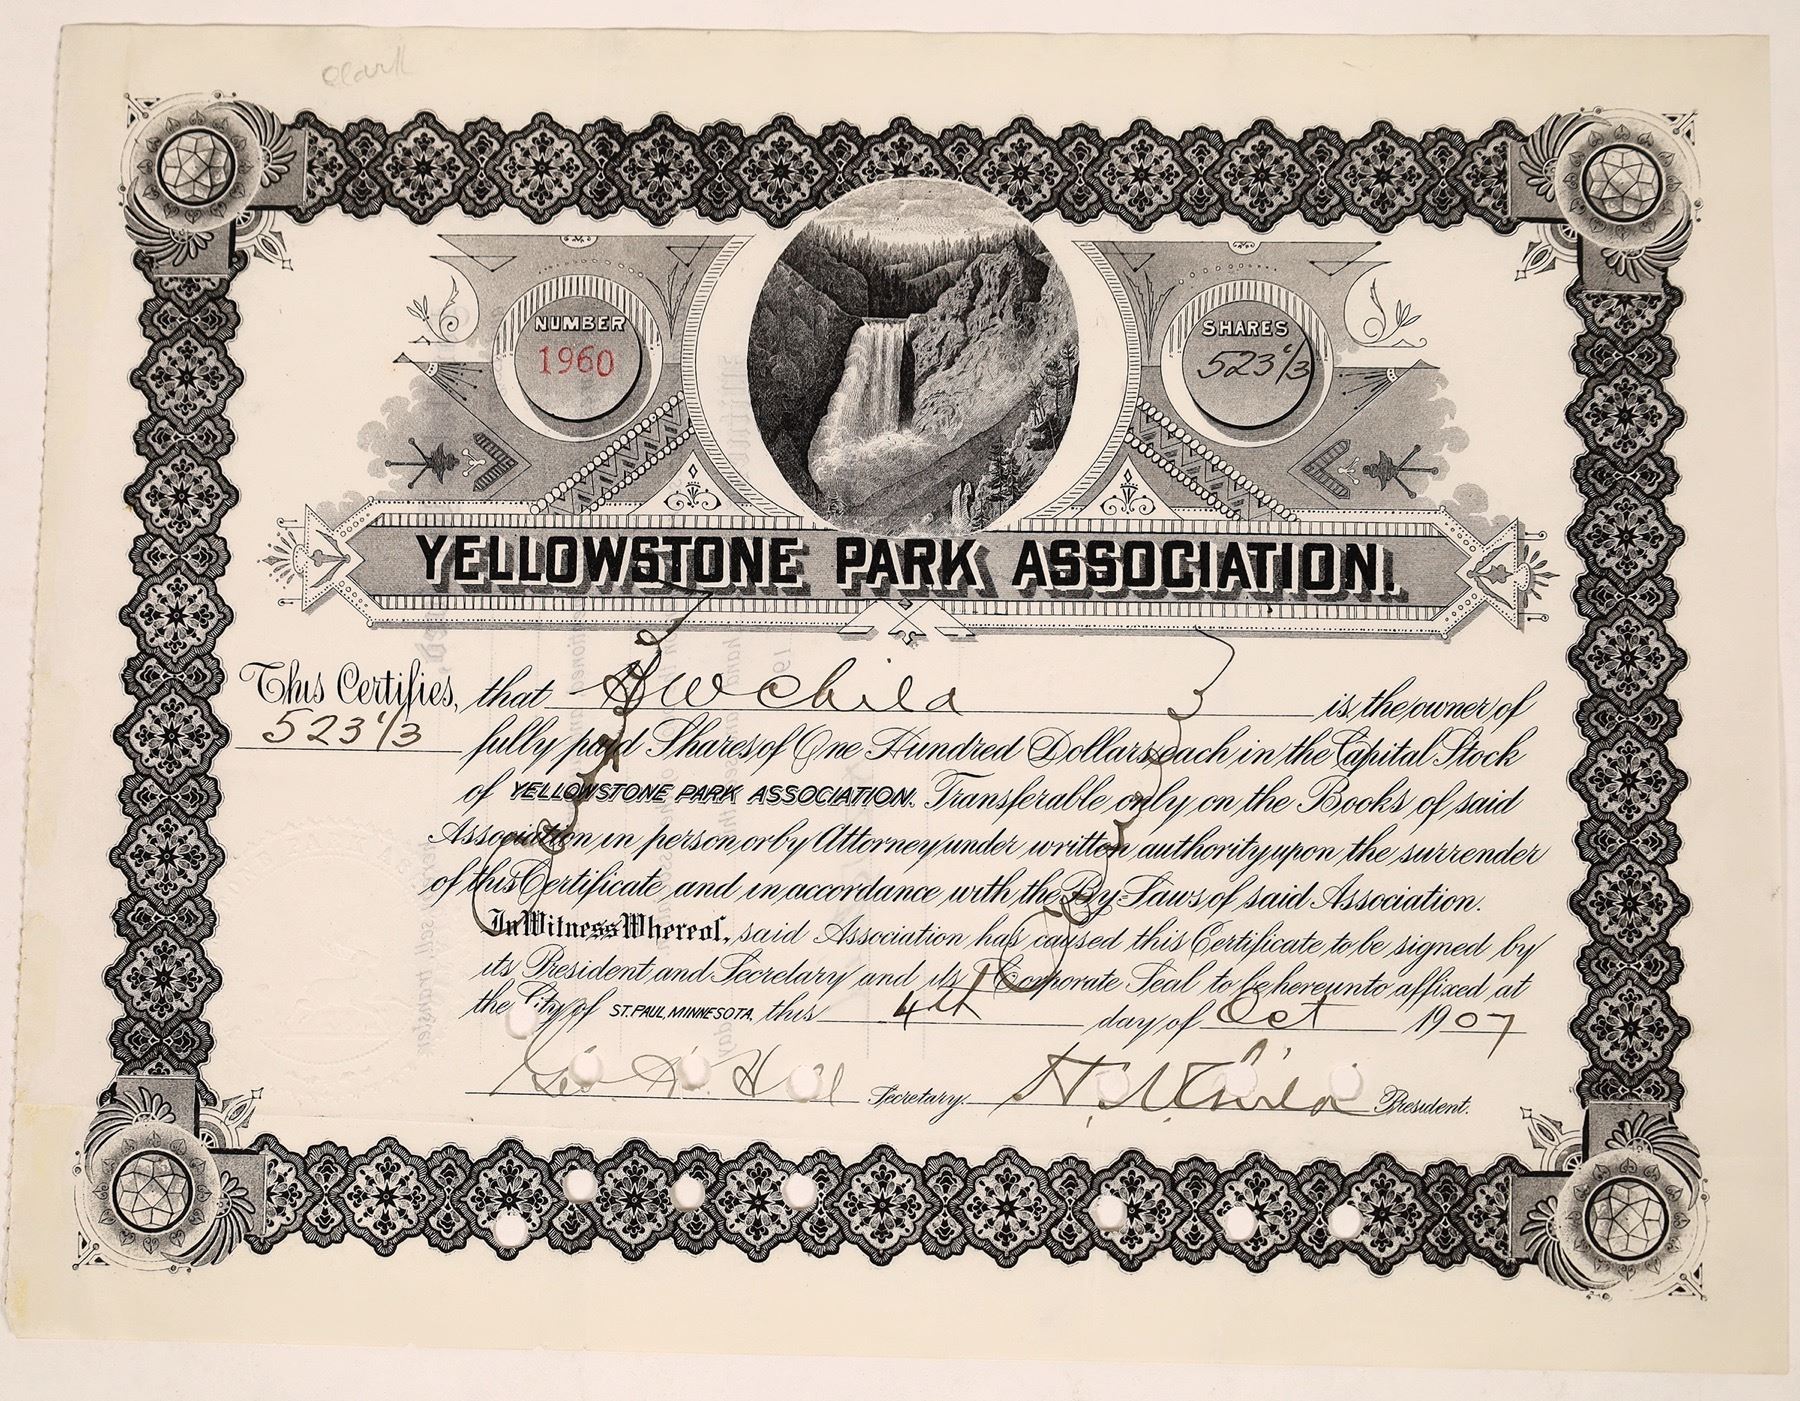 Clark
NUMBER
1960
SHARES
523 1/3
YELLOWSTONE PARK ASSOCIATION.
This Certifies, that H W Child is the owner of
523 1/3 fully paid Shares of One Hundred Dollars each in the Capital Stock
of YELLOWSTONE PARK ASSOCIATION. Transferable only on the Books of said
Association in person or by Attorney under written authority upon the surrender
of this Certificate and in accordance with the By-Laws of said Association.
In Witness Whereof, said Association has caused this Certificate to be signed by
its President and Secretary and its Corporate Seal to be hereunto affixed at
the City of ST. PAUL, MINNESOTA, this 4th day of Oct 1907
Geo. H. Hill Secretary. H. W. Child President.